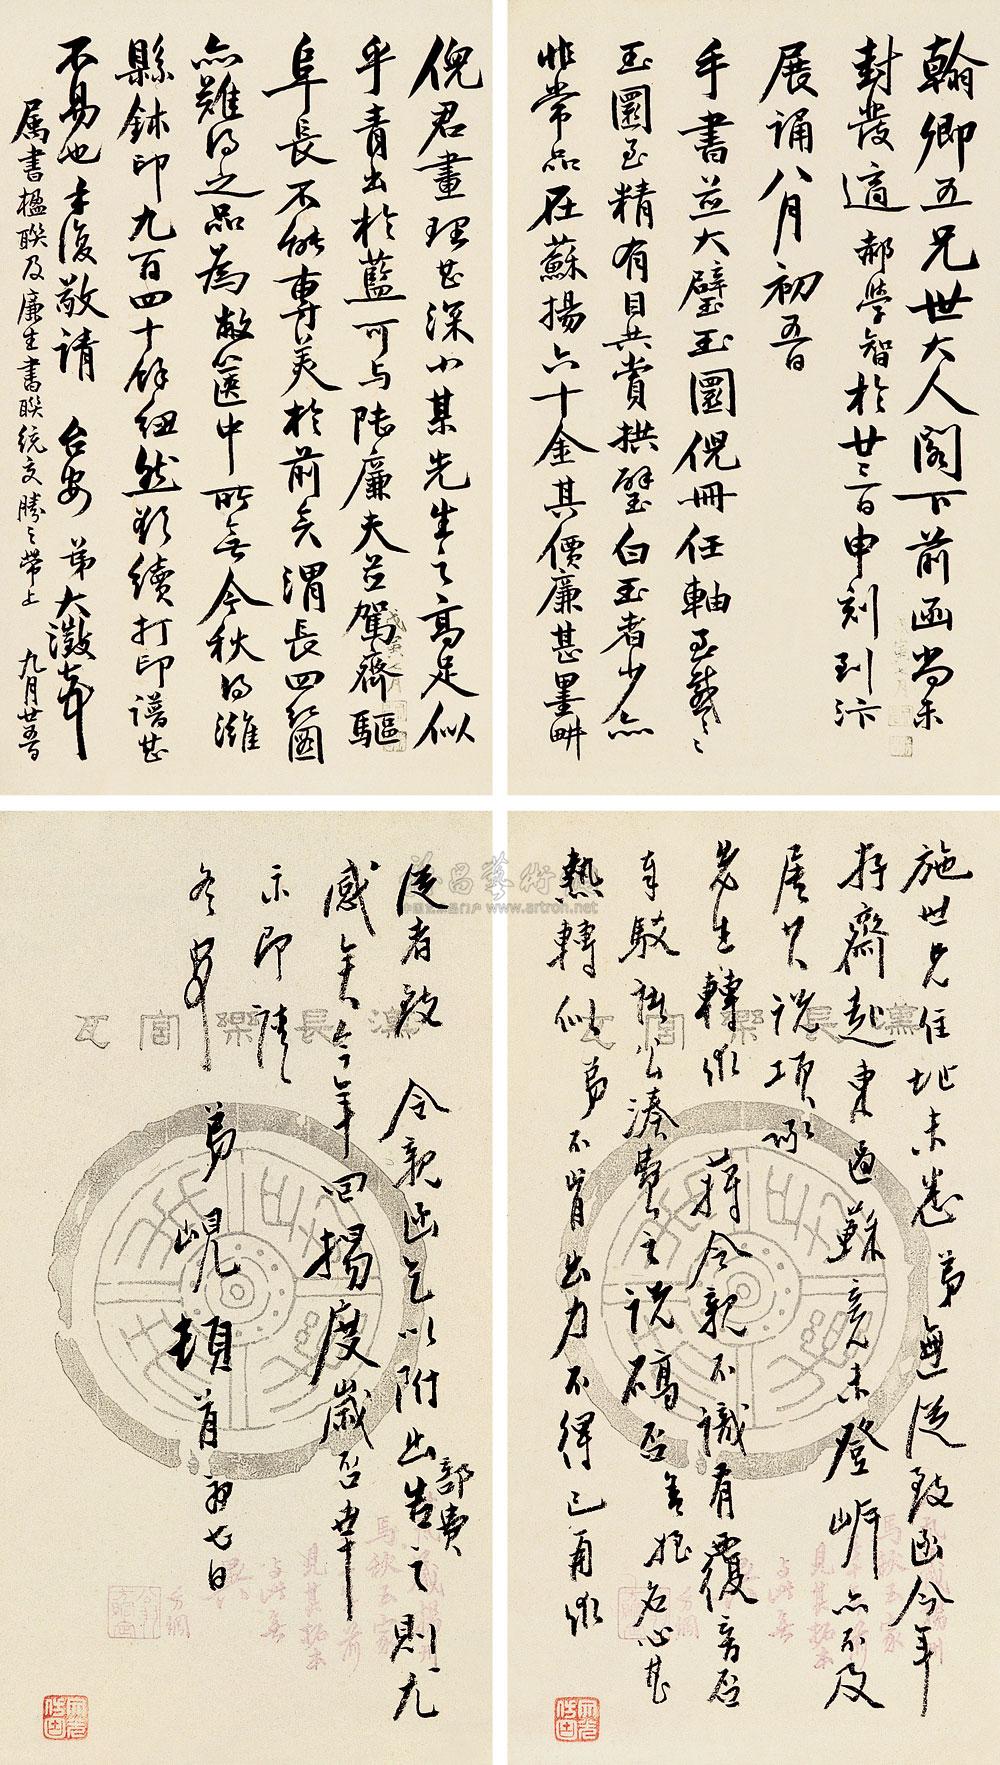 翰卿五兄世大人閣下前函尚未
封發適郝學智於廿三日申刻到汴
展誦八月初五日
手書並大璧玉圜倪冊任軸至感〻
玉圜至精有目共賞拱璧白玉者少亦
非常品在蘇揚六十金其價廉甚墨畊
倪君畫理甚深小某先生之高足似
乎青出於藍可与陸廉夫並駕齊驅
阜長不能專美於前矣渭長四圖
亦難得之品為敝篋中所無今秋得濰
縣鉢印九百四十餘紐然於續打印譜甚
不易也手復敬請 台安 弟大澂頓
屬書楹聯及廉生書聯統交勝之帶上 九月廿五日
施世兄住址未悉弟無從致函今年
存齋赴東過蘇竟未登岸亦不及
屠共說項
先生轉 蔣令親不識有覆音否
車駁諸公湊費之說確否 名心甚
熱轉似弟不肯出力不得已有
從者致 令親函乞以附出告之則尤
部費
感矣今年回揚度歲否
示即請
冬安 弟峴頓首 初七日
漢長樂宮瓦
www.artron.net